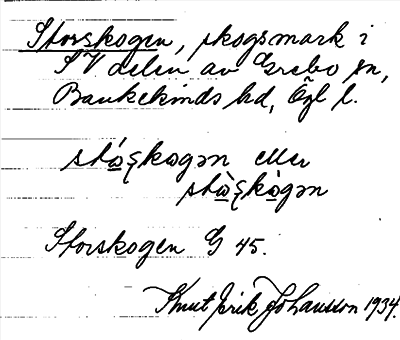 Storskogen, skogsmark i
SV delen av Grebo sn,
Bankekinds hd, Ögl l.
eller
Storskogen G 45.
Knut Erik Johansson 1934.